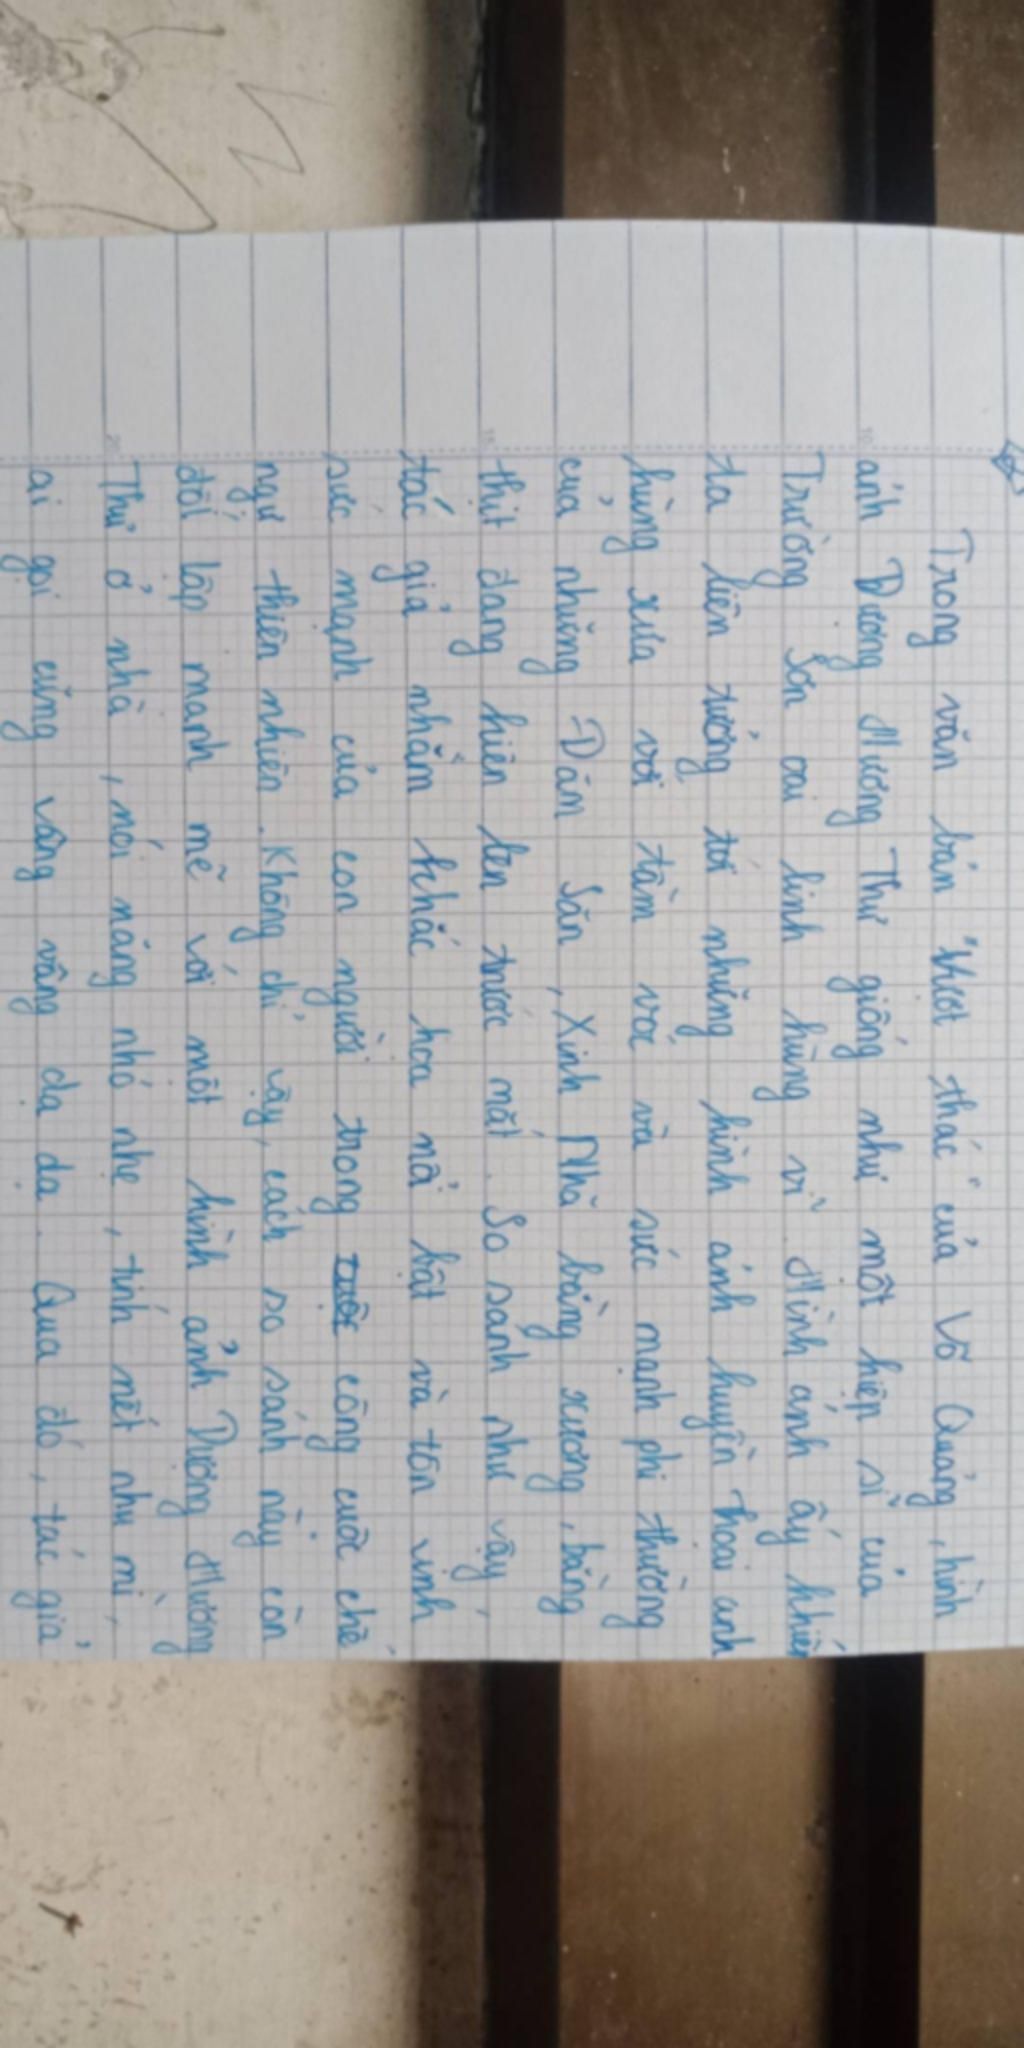 Trong văn bản "Vượt thác" của Võ Quảng, hình
ảnh Dượng Hương Thư giống như một hiệp sĩ của
Trường Sơn oai linh hùng vĩ. Hình ảnh ấy khiến
ta liên tưởng tới những hình ảnh huyền thoai anh
hùng xưa với tầm vóc và sức mạnh phi thường
của những Đăm Săn, Xinh Nhã bằng xương, bằng
thịt đang hiện lên trước mắt. So sánh như vậy,
tác giả nhằm khắc hoa nổi bật và tôn vinh
sức mạnh của con người trong công cuộc chế
ngự thiên nhiên. Không chỉ vậy, cách so sánh này còn
đối lập mạnh mẽ với một hình ảnh Dượng Hương
Thư ở nhà, nói năng nhỏ nhẹ, tính nết nhu mì,
ai gọi cũng vâng vâng dạ dạ. Qua đó, tác giả